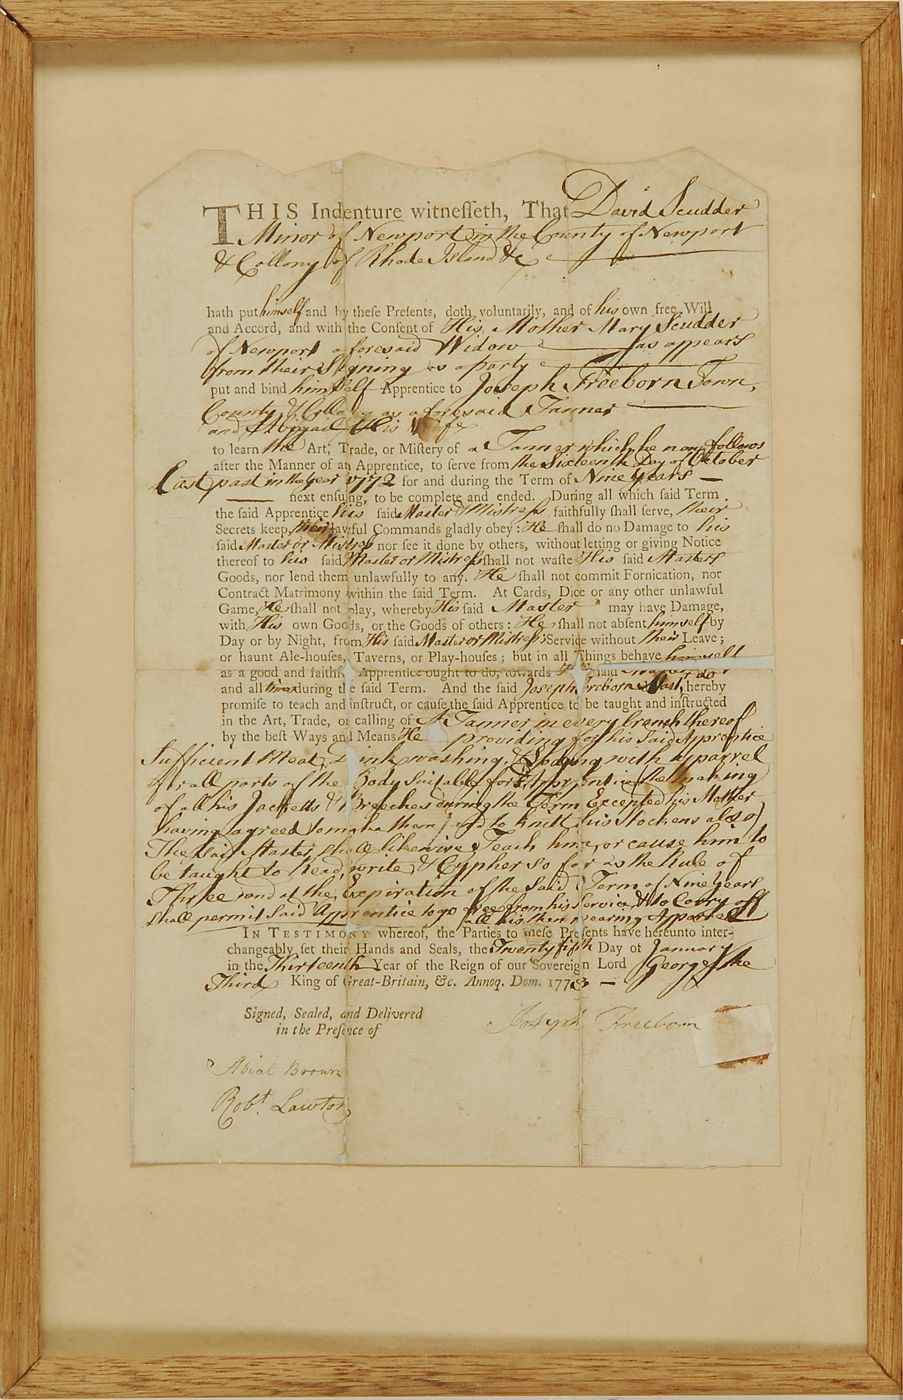 THIS Indenture witnesseth, That David Scudder
Minor of Newport in the County of Newport
& Collony of Rhode Island &c
hath put himself and by these Presents, doth voluntarily, and of his own free Will
and Accord, and with the Consent of His Mother Mary Scudder
of Newport aforesaid Widow as appears
from their Signing as a party
put and bind himself Apprentice to Joseph Freeborn Town,
County & Collony as aforesaid Tanner
and Abigail His Wife
to learn the Art, Trade, or Mistery of a Tanner which he now follows
after the Manner of an Apprentice, to serve from the Sixteenth Day of October
Last past in the Year 1772 for and during the Term of Nine Years
next ensuing, to be complete and ended. During all which said Term
the said Apprentice his said Master & Mistress faithfully shall serve, their
Secrets keep, their lawful Commands gladly obey: He shall do no Damage to his
said Master or Mistress nor see it done by others, without letting or giving Notice
thereof to his said Master or Mistress shall not waste His said Masters
Goods, nor lend them unlawfully to any. He shall not commit Fornication, nor
Contract Matrimony within the said Term. At Cards, Dice or any other unlawful
Game, He shall not play, whereby His said Master may have Damage,
with His own Goods, or the Goods of others: He shall not absent himself by
Day or by Night, from His said Master or Mistress Service without their Leave;
or haunt Ale-houses, Taverns, or Play-houses; but in all Things behave himself
as a good and faithful Apprentice ought to do, towards said
and all during the said Term. And the said Joseph Freeborn hereby
promise to teach and instruct, or cause the said Apprentice to be taught and instructed
in the Art, Trade, or calling of A Tanner in every branch thereof
by the best Ways and Means He providing for his Said Apprentice
Sufficient Meat, Drink washing, & Lodging with Apparrel
of all parts of the Body Suitable for Apprentice (the making
of all his Jacketts & Breeches during the Term Excepted his Mother
having agreed to make them, and to knitt his Stockens also)
The said Master shall likewise Teach him, or cause him to
be taught to Read, write & Cypher so far as the Rule of
Three and at the Expiration of the Said Term of Nine Years
Shall permit Said Apprentice to go free from his Service & to Carry off
all his then wearing Apparel
IN TESTIMONY whereof, the Parties to these Presents have hereunto inter-
changeably set their Hands and Seals, the Twenty fifth Day of January
in the Thirteenth Year of the Reign of our Sovereign Lord George the
Third King of Great-Britain, &c. Annoq. Dom. 1773
Signed, Sealed, and Delivered
in the Presence of
Joseph Freeborn
Abial Brown
Robt. Lawton